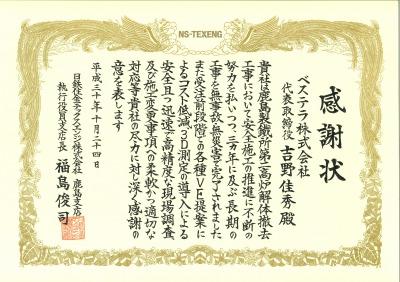 NS-TEXENG
感謝状
ベステラ株式会社
代表取締役 吉野佳秀 殿
貴社は鹿島製鐵所第二高炉解体撤去
工事において安全施工の推進に不断の
努力を払いつつ、三ヵ年に及ぶ長期の
工事を無事故無災害で完了されました
また受注前段階での各種VE提案に
よるコスト低減、3D測定の導入による
安全且つ迅速で高精度な現場調査、
及び施工変更事項への柔軟かつ適切な
対応等貴社の尽力に対し深く感謝の
意を表します
平成三十年十月二十四日
日鉄住金テックスエンジ株式会社 鹿島支店
執行役員支店長 福島俊司